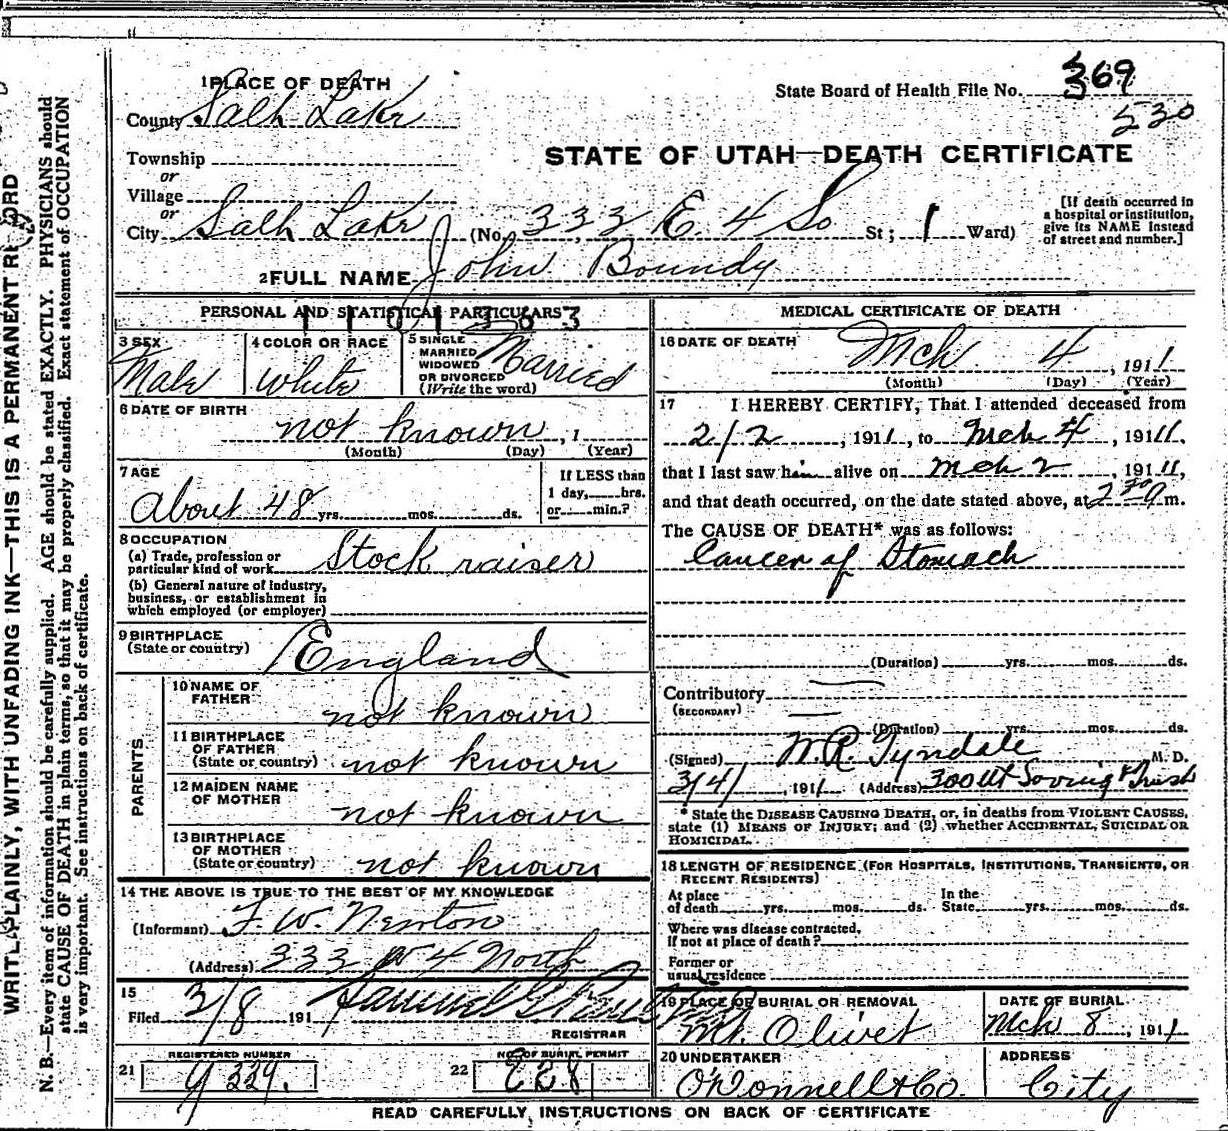 1 PLACE OF DEATH
County Salt Lake
State Board of Health File No. 369
530
Township
or
Village
or
City Salt Lake (No. 333 E. 4 So St; 1 Ward)
STATE OF UTAH—DEATH CERTIFICATE
[If death occurred in a hospital or institution, give its NAME instead of street and number.]
2 FULL NAME John Boundy
PERSONAL AND STATISTICAL PARTICULARS
1101303
3 SEX
Male
4 COLOR OR RACE
White
5 SINGLE
MARRIED
WIDOWED
OR DIVORCED
(Write the word)
Married
6 DATE OF BIRTH
not known, 1
(Month) (Day) (Year)
7 AGE
About 48 yrs. mos. ds.
If LESS than
1 day, hrs.
or min.?
8 OCCUPATION
(a) Trade, profession or
particular kind of work Stock raiser
(b) General nature of industry,
business, or establishment in
which employed (or employer)
9 BIRTHPLACE
(State or country) England
PARENTS
10 NAME OF
FATHER not known
11 BIRTHPLACE
OF FATHER
(State or country) not known
12 MAIDEN NAME
OF MOTHER not known
13 BIRTHPLACE
OF MOTHER
(State or country) not known
14 THE ABOVE IS TRUE TO THE BEST OF MY KNOWLEDGE
(Informant) F. W. Newton
(Address) 333 W 4 North
15
Filed 3/8 191
REGISTRAR
21 REGISTERED NUMBER
22 NO. OF BURIAL PERMIT
MEDICAL CERTIFICATE OF DEATH
16 DATE OF DEATH
Mch 4, 1911
(Month) (Day) (Year)
17 I HEREBY CERTIFY, That I attended deceased from
2/2, 1911, to Mch 4, 1911.
that I last saw him alive on Mch 2, 1911,
and that death occurred, on the date stated above, at 2 30 a m.
The CAUSE OF DEATH* was as follows:
Cancer of Stomach
(Duration) yrs. mos. ds.
Contributory
(SECONDARY)
(Duration) yrs. mos. ds.
(Signed) W.R. Tyndale M. D.
3/4/, 1911 (Address) 300 Ut Saving & Trust
* State the DISEASE CAUSING DEATH, or, in deaths from VIOLENT CAUSES,
state (1) MEANS OF INJURY; and (2) whether ACCIDENTAL, SUICIDAL OR
HOMICIDAL.
18 LENGTH OF RESIDENCE (FOR HOSPITALS, INSTITUTIONS, TRANSIENTS, OR
RECENT RESIDENTS)
At place
of death yrs. mos. ds. In the
State yrs. mos. ds.
Where was disease contracted,
if not at place of death?
Former or
usual residence
19 PLACE OF BURIAL OR REMOVAL
Mt. Olivet
DATE OF BURIAL
Mch 8, 1911
20 UNDERTAKER
O'Donnell & Co.
ADDRESS
City
READ CAREFULLY INSTRUCTIONS ON BACK OF CERTIFICATE
N. B.—Every item of information should be carefully supplied. AGE should be stated EXACTLY. PHYSICIANS should
state CAUSE OF DEATH in plain terms, so that it may be properly classified. Exact statement of OCCUPATION
is very important. See instructions on back of certificate.
PLAINLY, WITH UNFADING INK—THIS IS A PERMANENT